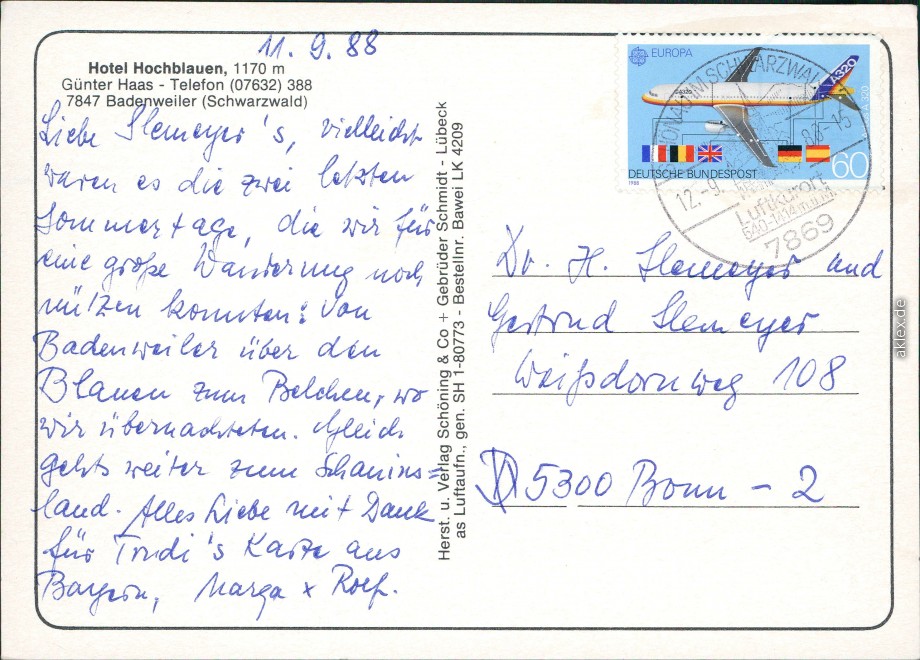 11.9.88
Hotel Hochblauen, 1170 m
Günter Haas - Telefon (07632) 388
7847 Badenweiler (Schwarzwald)
Liebe Slemeyer's, vielleicht
waren es die zwei letzten
Sommertage, die wir für
eine große Wanderung noch
nützen konnten: Von
Badenweiler über den
Blauen zum Belchen, wo
wir übernachteten. Gleich
gehts weiter zum Schauins=
land. Alles Liebe mit Dank
für Trudi's Karte aus
Bayern, Marga + Rolf.
Herst. u. Verlag Schöning & Co + Gebrüder Schmidt - Lübeck
as Luftaufn., gen. SH 1-80773 - Bestellnr. Bawei LK 4209
EUROPA
A320
A320
60
DEUTSCHE BUNDESPOST
1988
SCHÖNAU IM SCHWARZWALD
12.-9. 88-15
Luftkurort
540-1414 m ü.M.
7869
Dr. H. Slemeyer und
Gertrud Slemeyer
Weißdornweg 108
D 5300 Bonn - 2
aklex.de